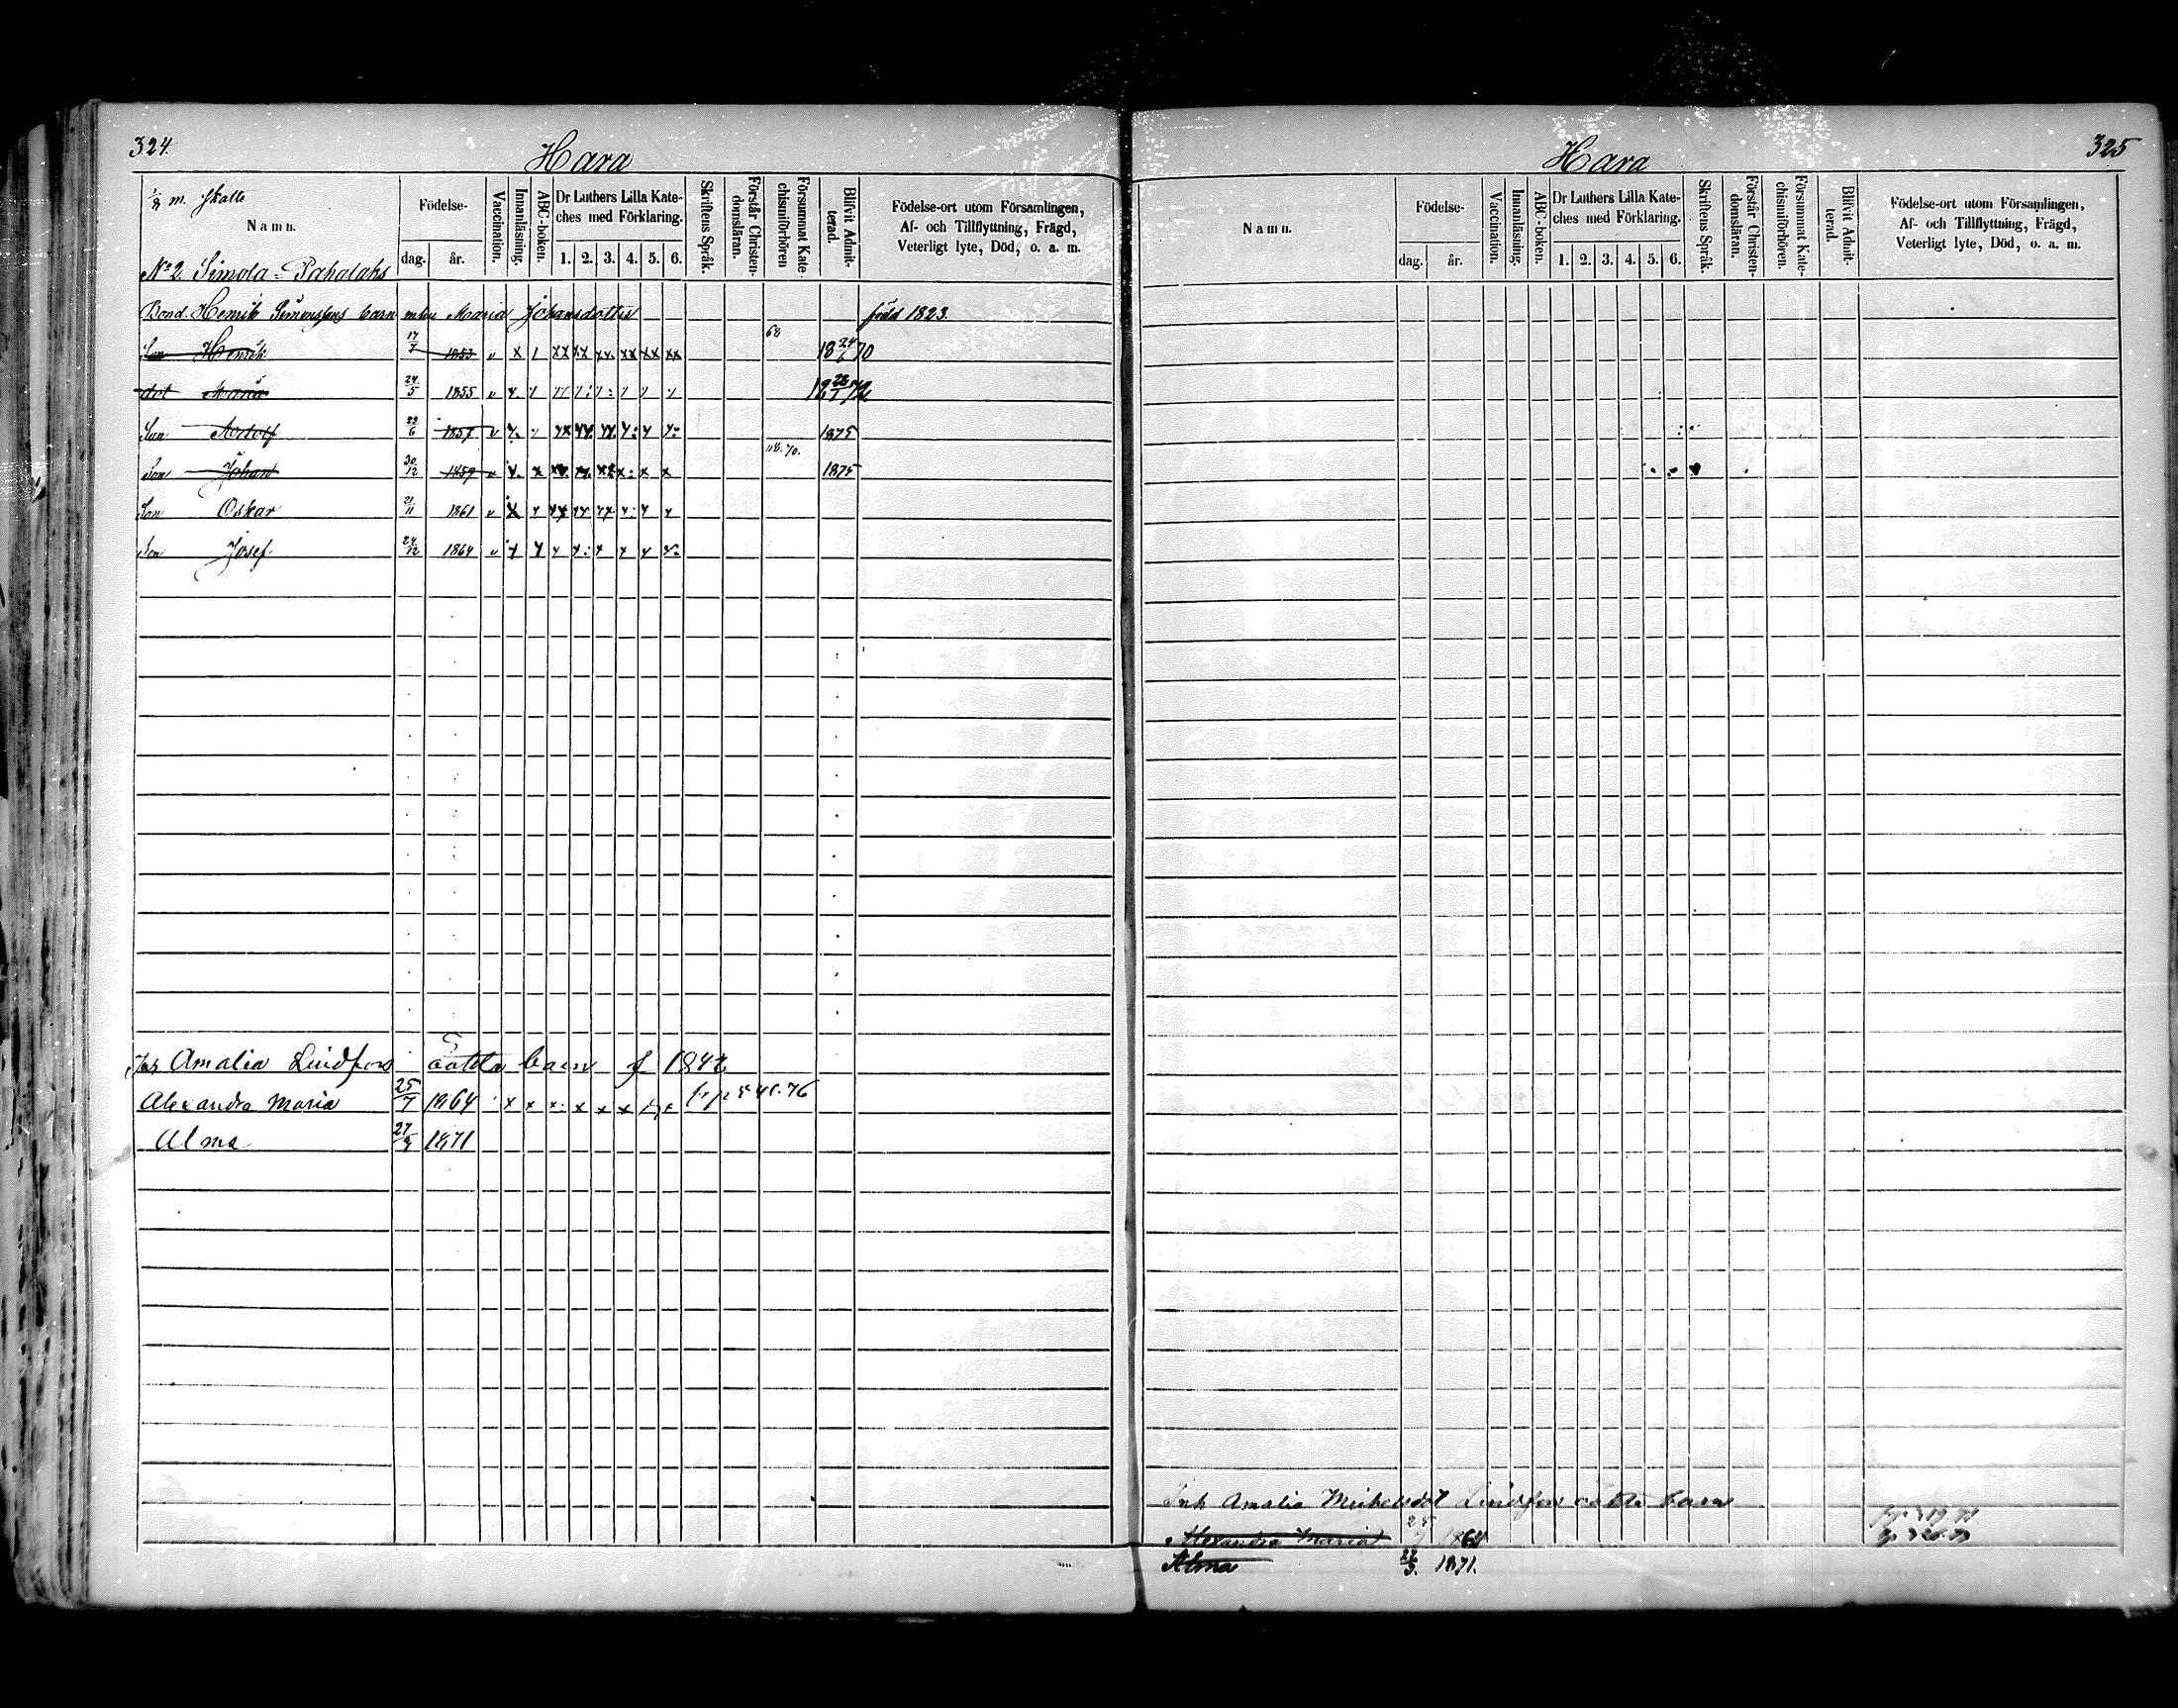 324.
Hara
1/8 m. Skatte
Namn.
Födelse-
dag. år.
Vaccination.
Innanläsning.
ABC-boken.
Dr Luthers Lilla Kateches med Förklaring.
1. 2. 3. 4. 5. 6.
Skriftens Språk.
Förstår Christendomsläran.
Försummat Katechismiförhören
Blifvit Admitterad.
Födelse-ort utom Församlingen,
Af- och Tillflyttning, Frägd,
Veterligt lyte, Död, o. a. m.
No 2. Simola-Pahalahs
Bond. Henrik Simonssons barn Maria Johansdotter född 1823.
Son Henrik 17/7 1853 v x 1 xx xx xx. xx xx xx 68 18 24/6 70
dot Maria 24/5 1855 v 18 28/7 72
Son Adolf 23/6 1857 v 1875
Son Johan 30/12 1859 v 70. 1875
Son Oskar 21/11 1861 v
Son Josef. 24/12 1864 v
Amalia Lindfors oäkta barn f 1842
Alexandra Maria 25/7 1864 x x x. x x x x 76
Alma 27/3 1871
325
Hara
Namn.
Födelse-
dag. år.
Vaccination.
Innanläsning.
ABC-boken.
Dr Luthers Lilla Kateches med Förklaring.
1. 2. 3. 4. 5. 6.
Skriftens Språk.
Förstår Christendomsläran.
Försummat Katechismiförhören.
Blifvit Admitterad.
Födelse-ort utom Församlingen,
Af- och Tillflyttning, Frägd,
Veterligt lyte, Död, o. a. m.
Inh Amalia Michelsdot Lindfors oäkta barn
Alexandra Maria 25/7 1864
Alma 27/3. 1871.